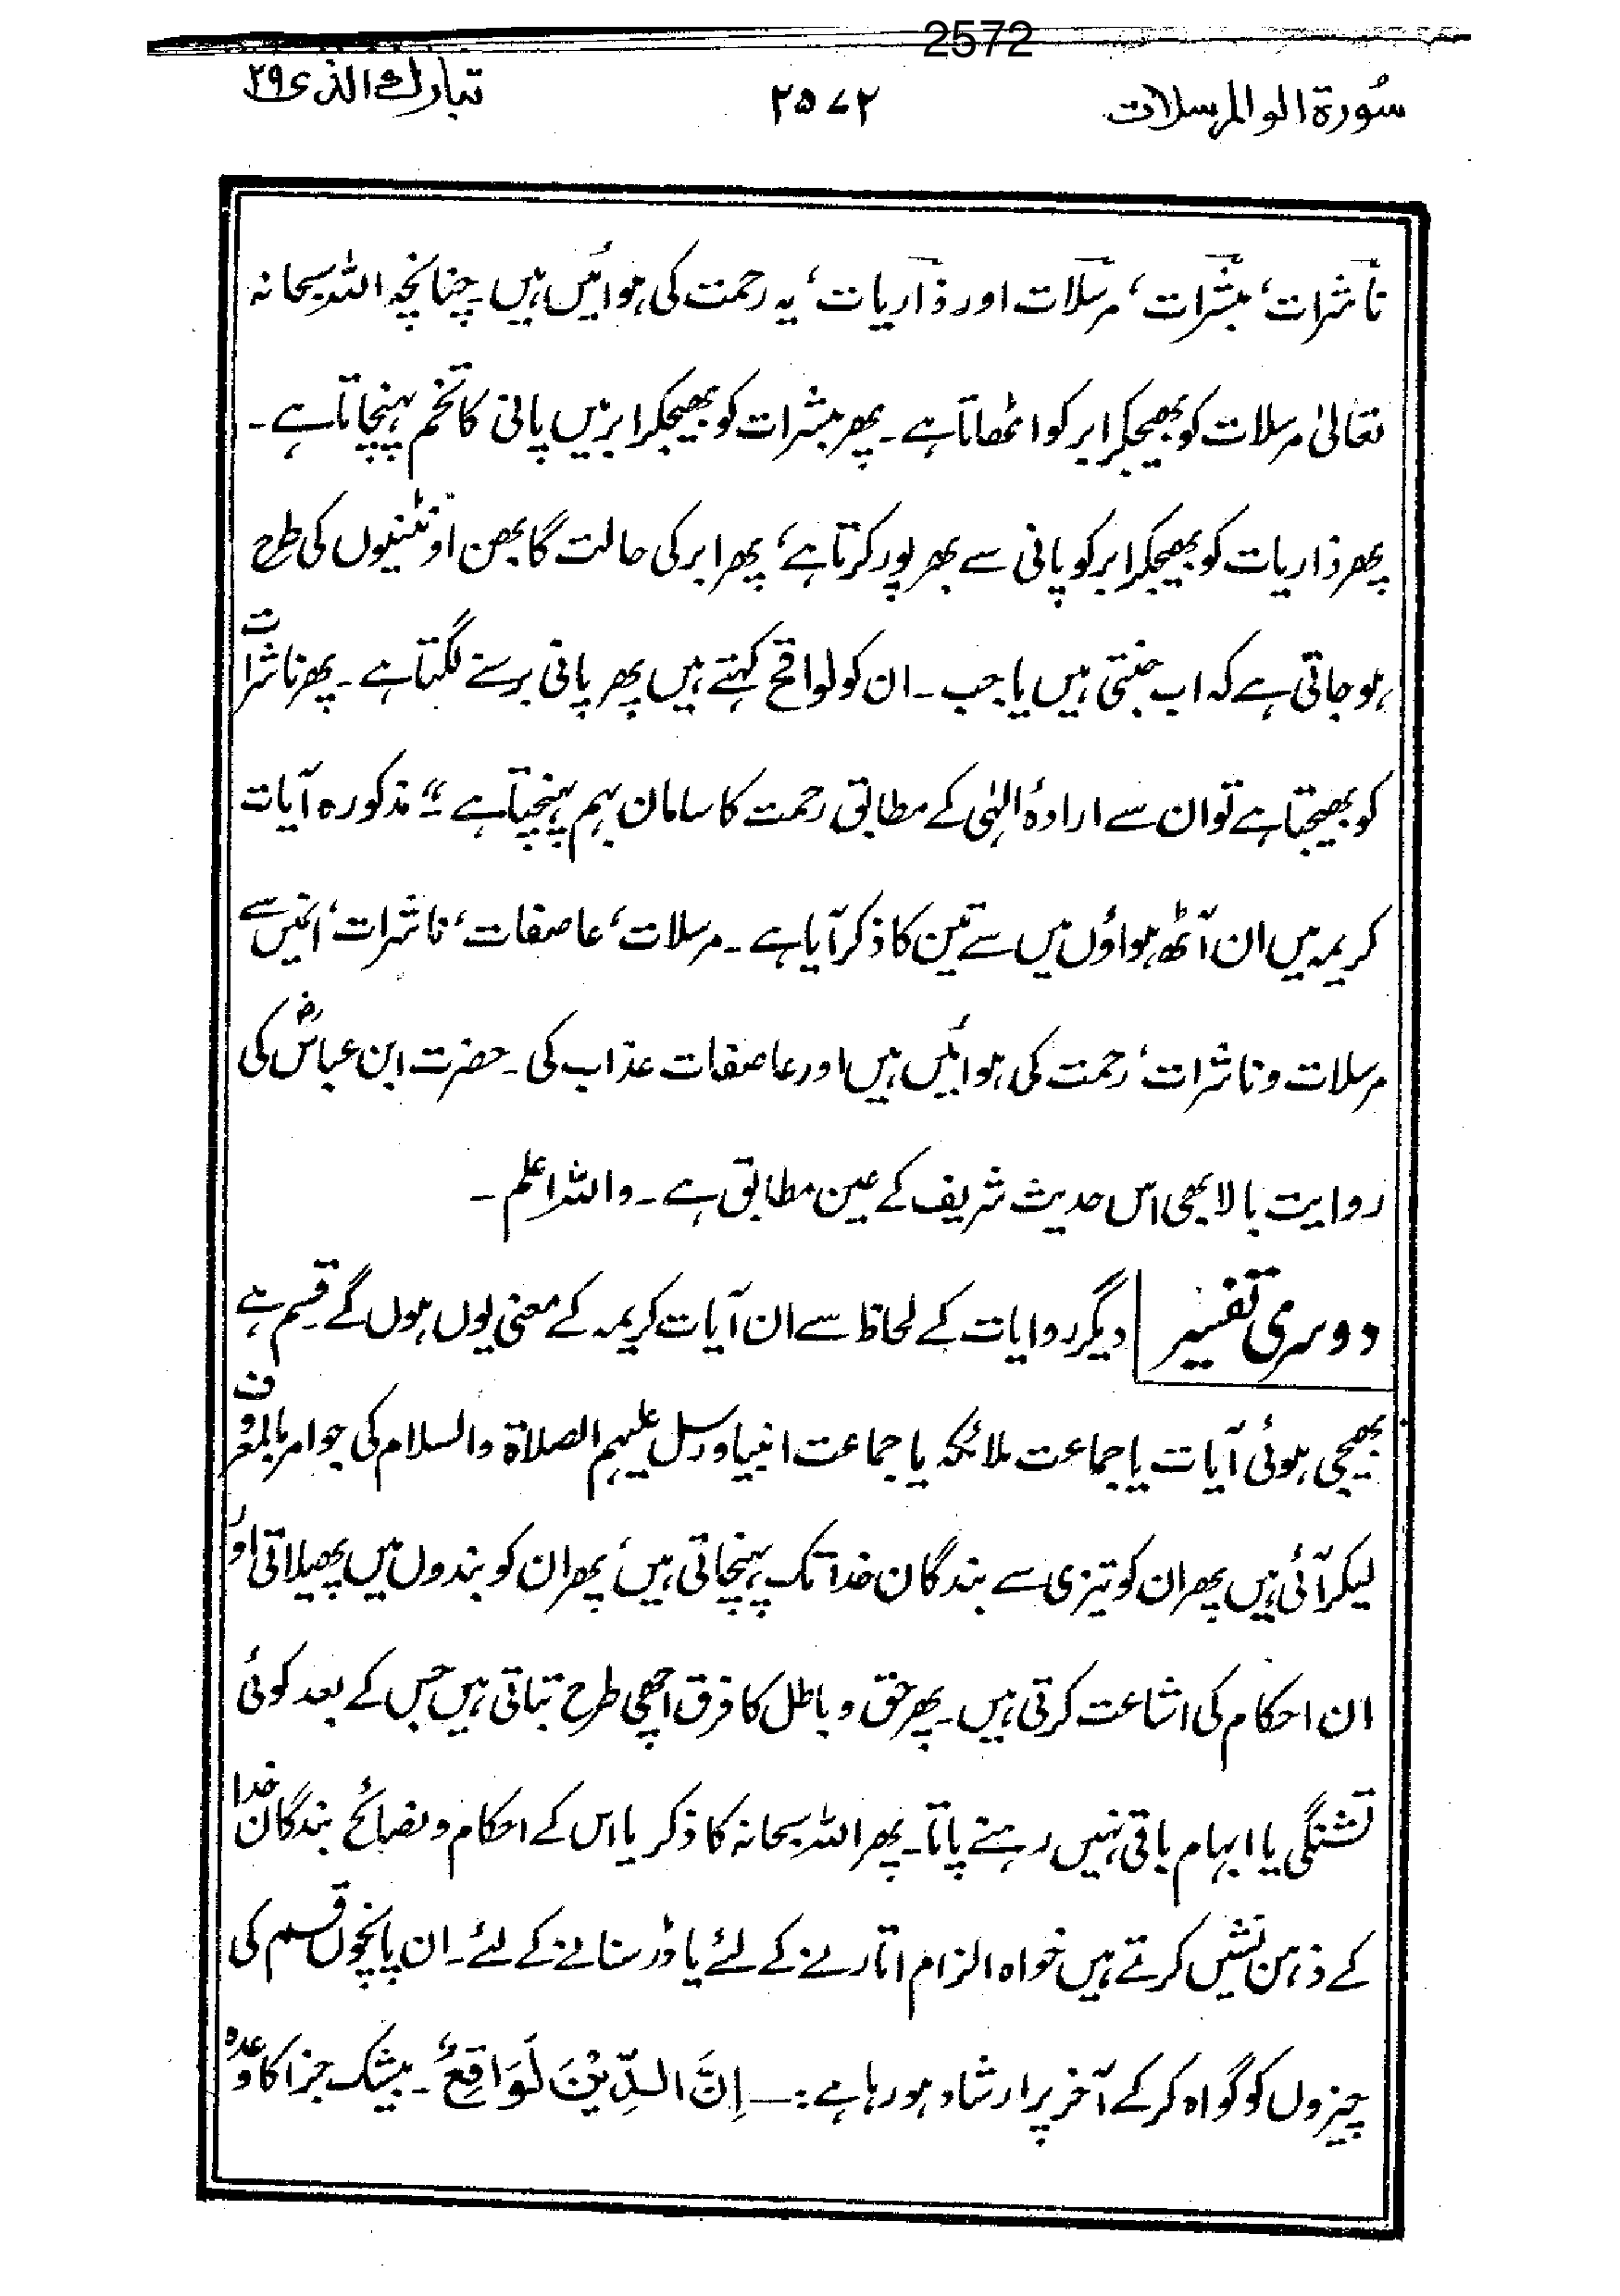 2572
سُورة الو المرسلات ۲۵۷۲ تبارك الذی ۲۹
ناشرات، مبشّرات، مرسلات اور ذاریات، یہ رحمت کی ہوائیں ہیں چنانچہ اللہ سبحانہ
تعالیٰ مرسلات کو بھیجکر ابر کو اٹھاتا ہے۔ پھر مبشرات کو بھیجکر ابر میں پانی کا تخم پہنچاتا ہے۔
پھر ذاریات کو بھیجکر ابر کو پانی سے بھرپور کرتا ہے، پھر ابر کی حالت گابھن اونٹنیوں کی طرح
ہو جاتی ہے کہ اب جنتی ہیں یا جب۔ ان کو لواقح کہتے ہیں پھر پانی برسنے لگتا ہے۔ پھر ناشرات
کو بھیجتا ہے تو ان سے ارادۂ الہٰی کے مطابق رحمت کا سامان بہم پہنچتا ہے"۔ مذکورہ آیات
کریمہ میں ان آٹھ ہواؤں میں سے تین کا ذکر آیا ہے۔ مرسلات، عاصفات، ناشرات، انمیں سے
مرسلات و ناشرات، رحمت کی ہوائیں ہیں اور عاصفات عذاب کی۔ حضرت ابن عباسؓ کی
روایت بالا بھی اس حدیث شریف کے عین مطابق ہے۔ واللہ اعلم۔
دوسری تفسیر دیگر روایات کے لحاظ سے ان آیات کریمہ کے معنی یوں ہوں گے قسم ہے
بھیجی ہوئی آیات یا جماعت ملائکہ یا جماعت انبیا و رسل علیہم الصلاۃ والسلام کی جو امر بالمعروف
لیکر آئی ہیں پھر ان کو تیزی سے بندگان خدا تک پہنچاتی ہیں، پھر ان کو بندوں میں پھیلاتی اور
ان احکام کی اشاعت کرتی ہیں۔ پھر حق و باطل کا فرق اچھی طرح بتاتی ہیں جس کے بعد کوئی
تشنگی یا ابہام باقی نہیں رہنے پاتا۔ پھر اللہ سبحانہ کا ذکر یا اس کے احکام و نصائح بندگان خدا
کے ذہن نشیں کرتے ہیں خواہ الزام اتارنے کے لئے یا ڈر سنانے کے لئے۔ ان پانچوں قسم کی
چیزوں کو گواہ کر کے آخر پر ارشاد ہو رہا ہے :۔ اِنَّ الدِّیْنَ لَوَاقِعٌ۔ بیشک جزا کا وعدہ